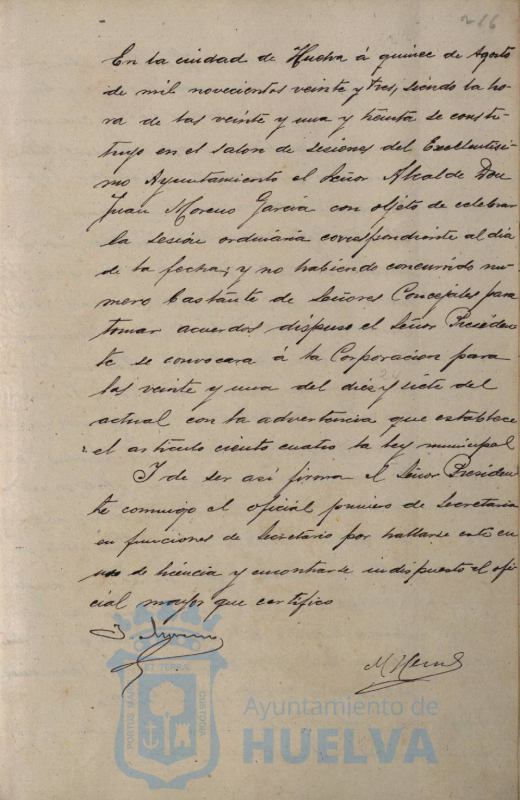 216
En la ciudad de Huelva á quince de Agosto
de mil novecientos veinte y tres, siendo la ho
ra de las veinte y una y treinta se consti-
tuyo en el salon de sesiones del Excelentisi-
mo Ayuntamiento el Señor Alcalde Don
Juan Moreno Garcia con objeto de celebrar
la sesion ordinaria correspondiente al dia
de la fecha; y no habiendo concurrido nu-
mero bastante de Señores Concejales para
tomar acuerdos dispuso el Señor Presiden
te se convocara á la Corporacion para
las veinte y una del diez y siete del
actual con la advertencia que establece
el articulo ciento cuatro la ley municipal
I de ser asi firma el Señor Presiden
te conmigo el oficial primero de Secretaria
en funciones de Secretario por hallarse este en
uso de licencia y encontrarse indispuesto el ofi
cial mayor que certifico
J. Moreno
PORTUS MARIS ET TERRAE CUSTODIA
Ayuntamiento de
HUELVA